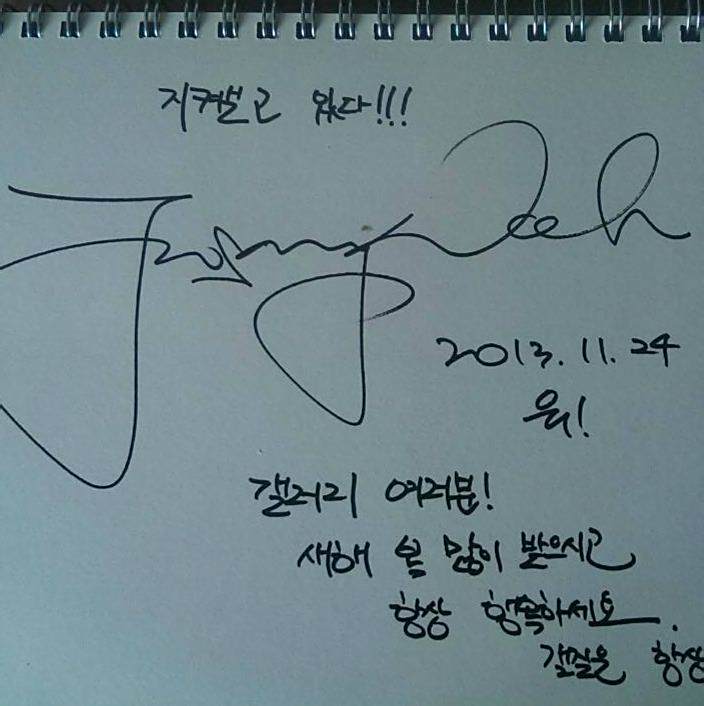 지켜보고 있다!!!
2013. 11. 24
갤러리 여러분!
새해 복 많이 받으시고
항상 행복하세요.
항상